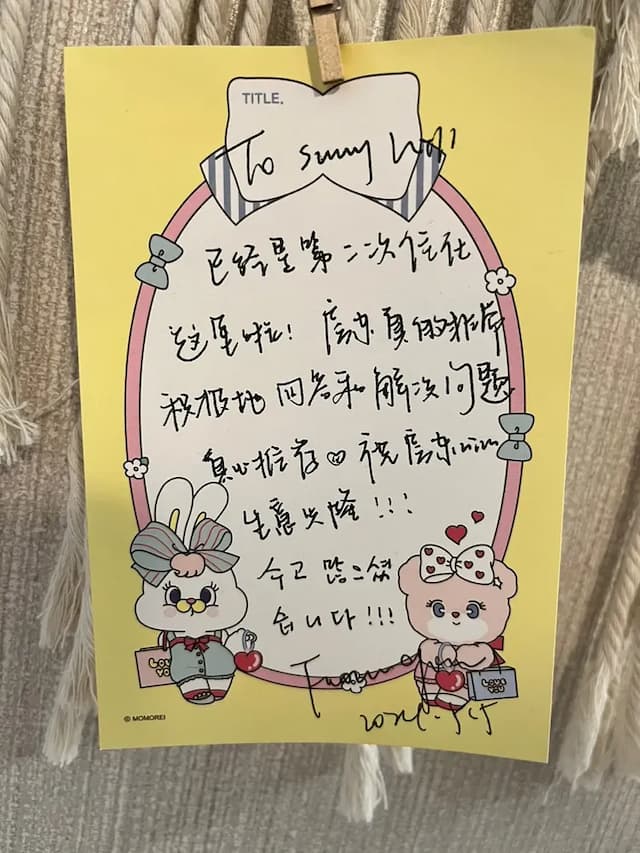 TITLE.
To sunny
已经是第二次住在
这里啦！房东真的非常
积极地回答和解决问题
真心推荐♡祝房东
生意兴隆！！！
수고 많으셨
습니다!!!
LOVE YOU
LOVE YOU
© MOMOREI